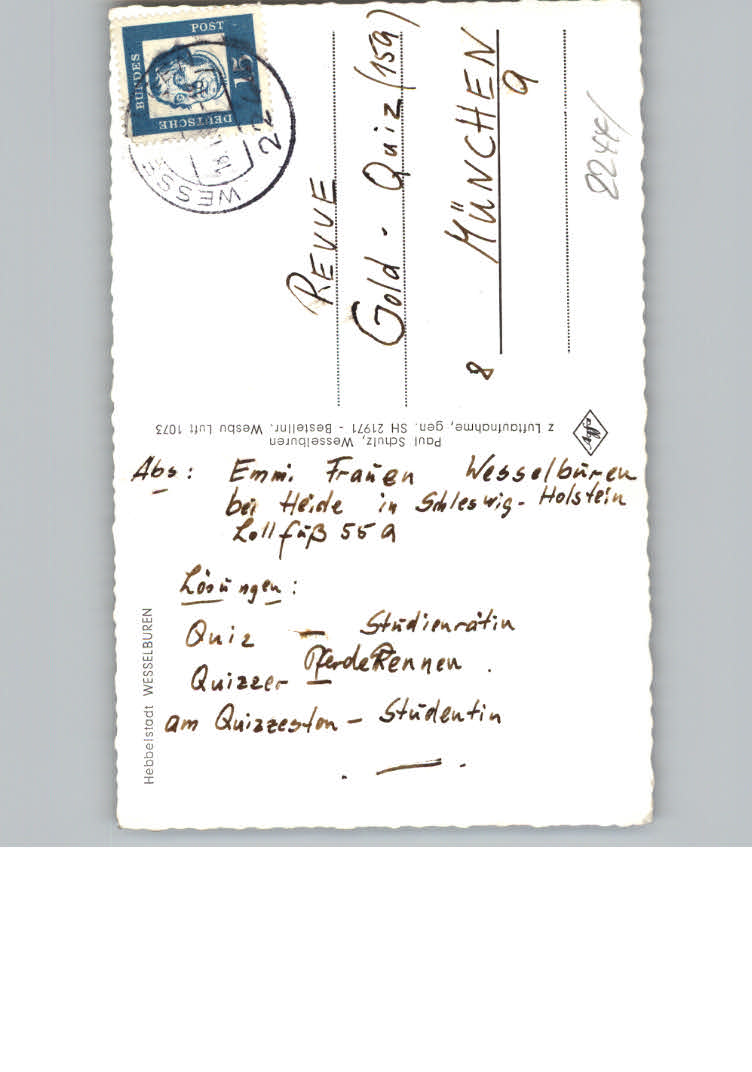 DEUTSCHE
BUNDES
POST
15
WESSE
22
REVUE
Gold - Quiz (159)
8 MÜNCHEN
9
2244/
Paul Schulz, Wesselburen
z Luftaufnahme, gen. SH 21971 - Bestellnr. Wesbu Luft 1073
Agfa
Abs: Emmi Frauen Wesselburen
bei Heide in Schleswig-Holstein
Lollfuß 55 a
Lösungen:
Quiz — Studienrätin
Quizzer — PferdeRennen.
am Quizzesten — Studentin
Hebbelstadt WESSELBUREN